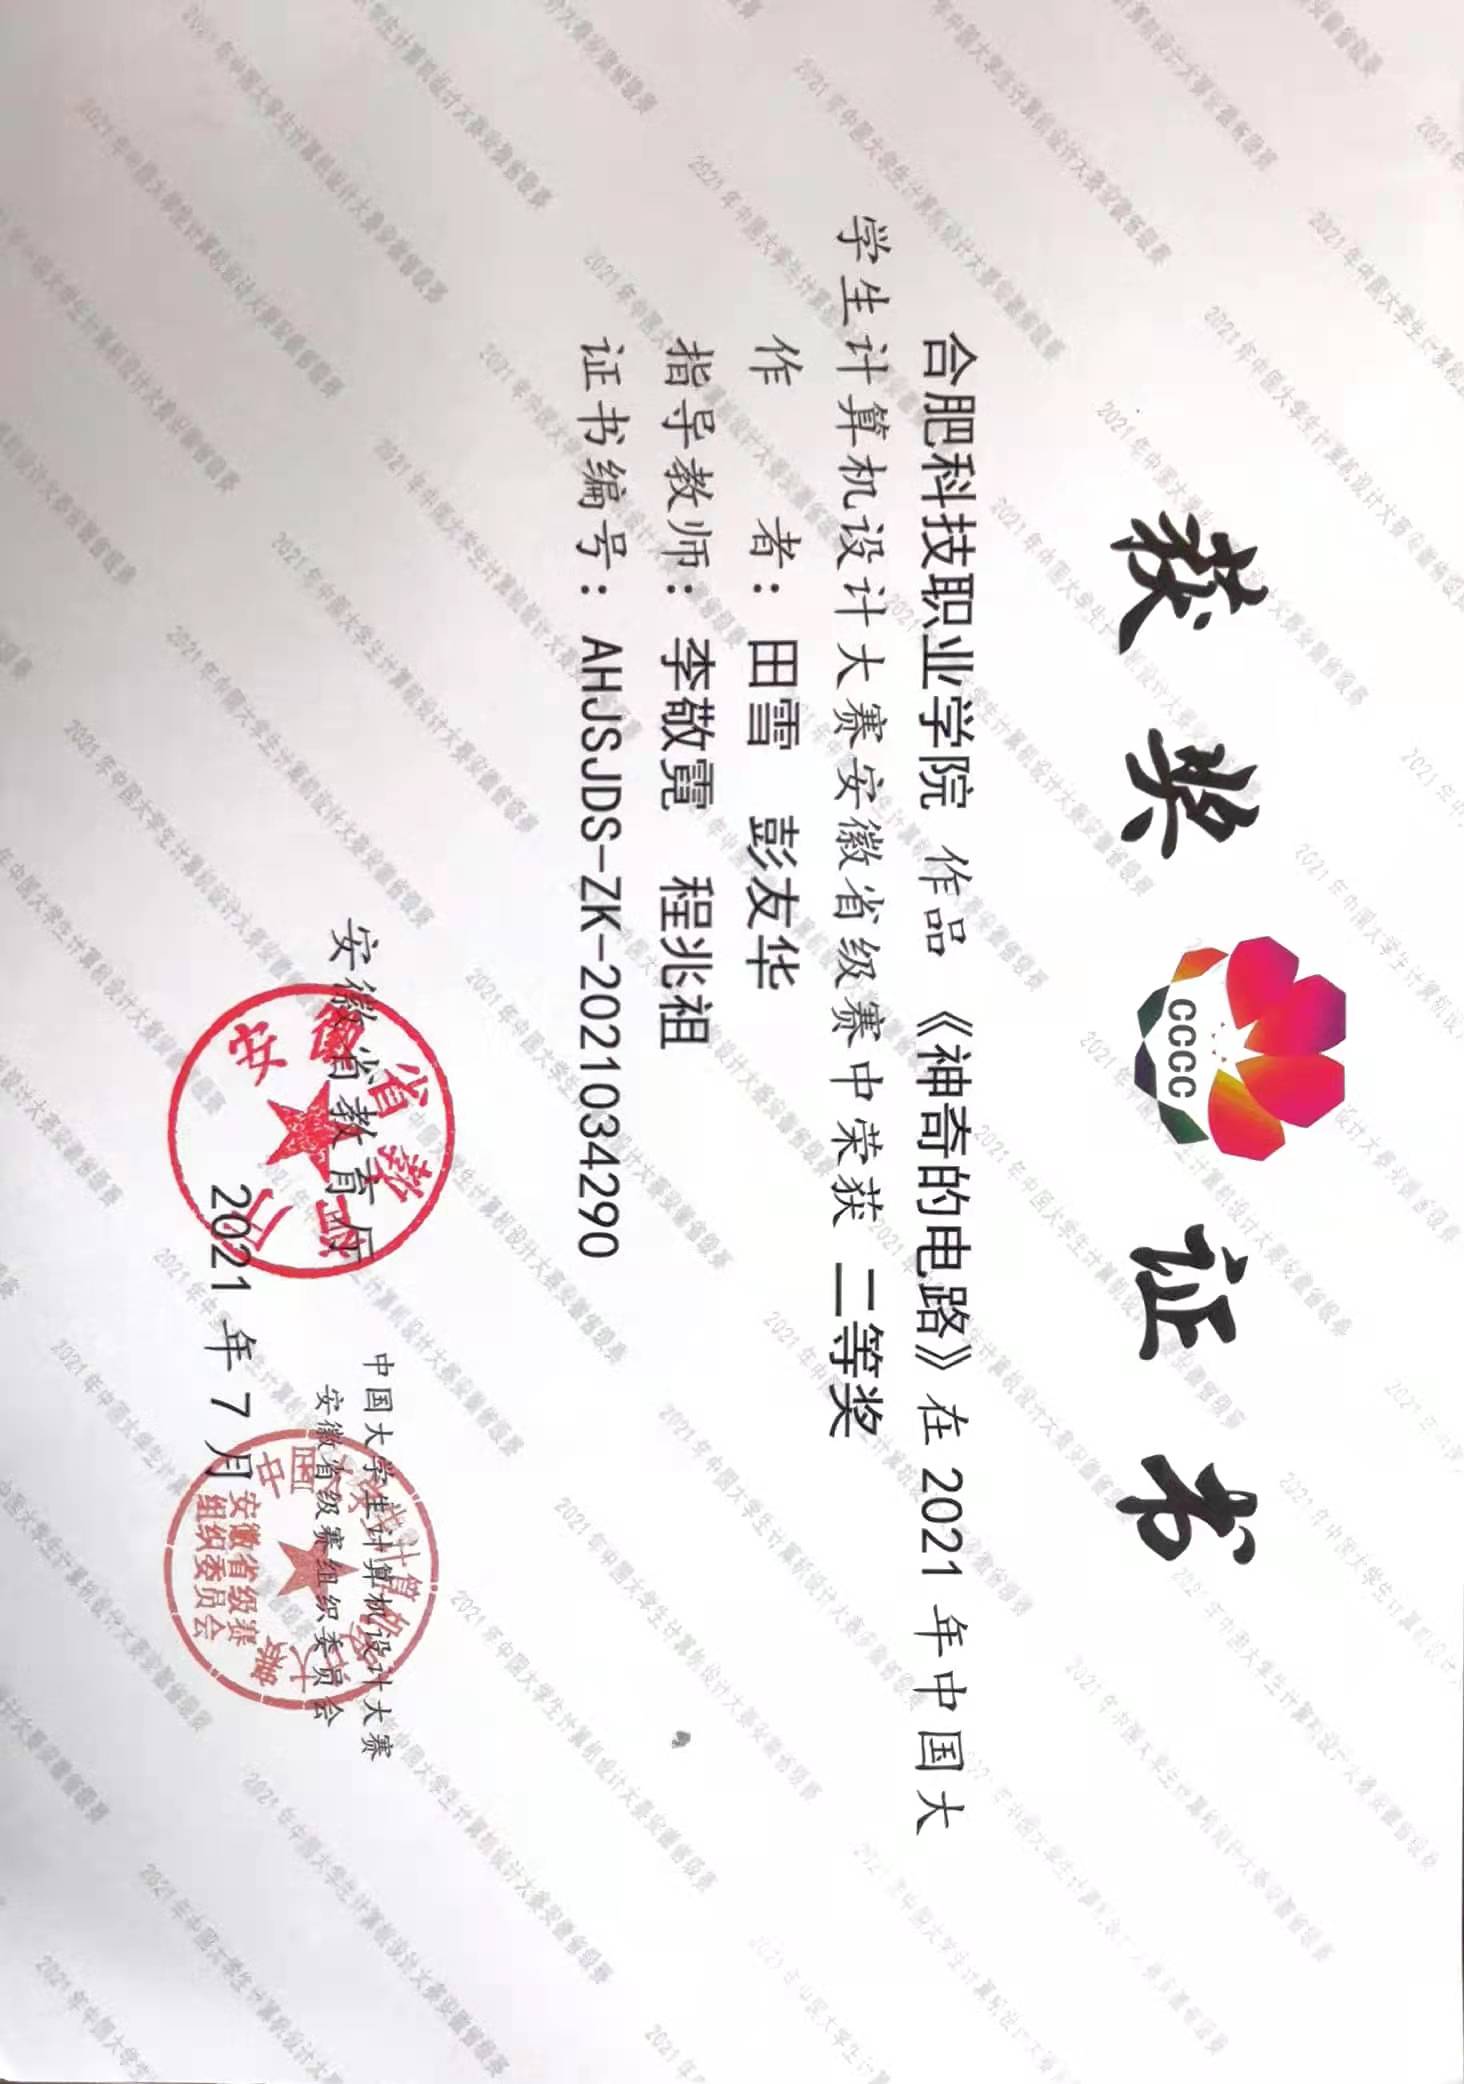 获奖证书
CCCC
合肥科技职业学院 作品 《神奇的电路》在 2021 年中国大
学生计算机设计大赛安徽省级赛中荣获 二等奖
作 者： 田雪 彭友华
指导教师： 李敬霓 程兆祖
证书编号： AHJSJDS-ZK-2021034290
安徽省教育厅
中国大学生计算机设计大赛
安徽省级赛组织委员会
2021 年 7 月
安徽省教育厅
中国大学生计算机设计大赛
安徽省级赛
组织委员会
2021年中国大学生计算机设计大赛安徽省级赛